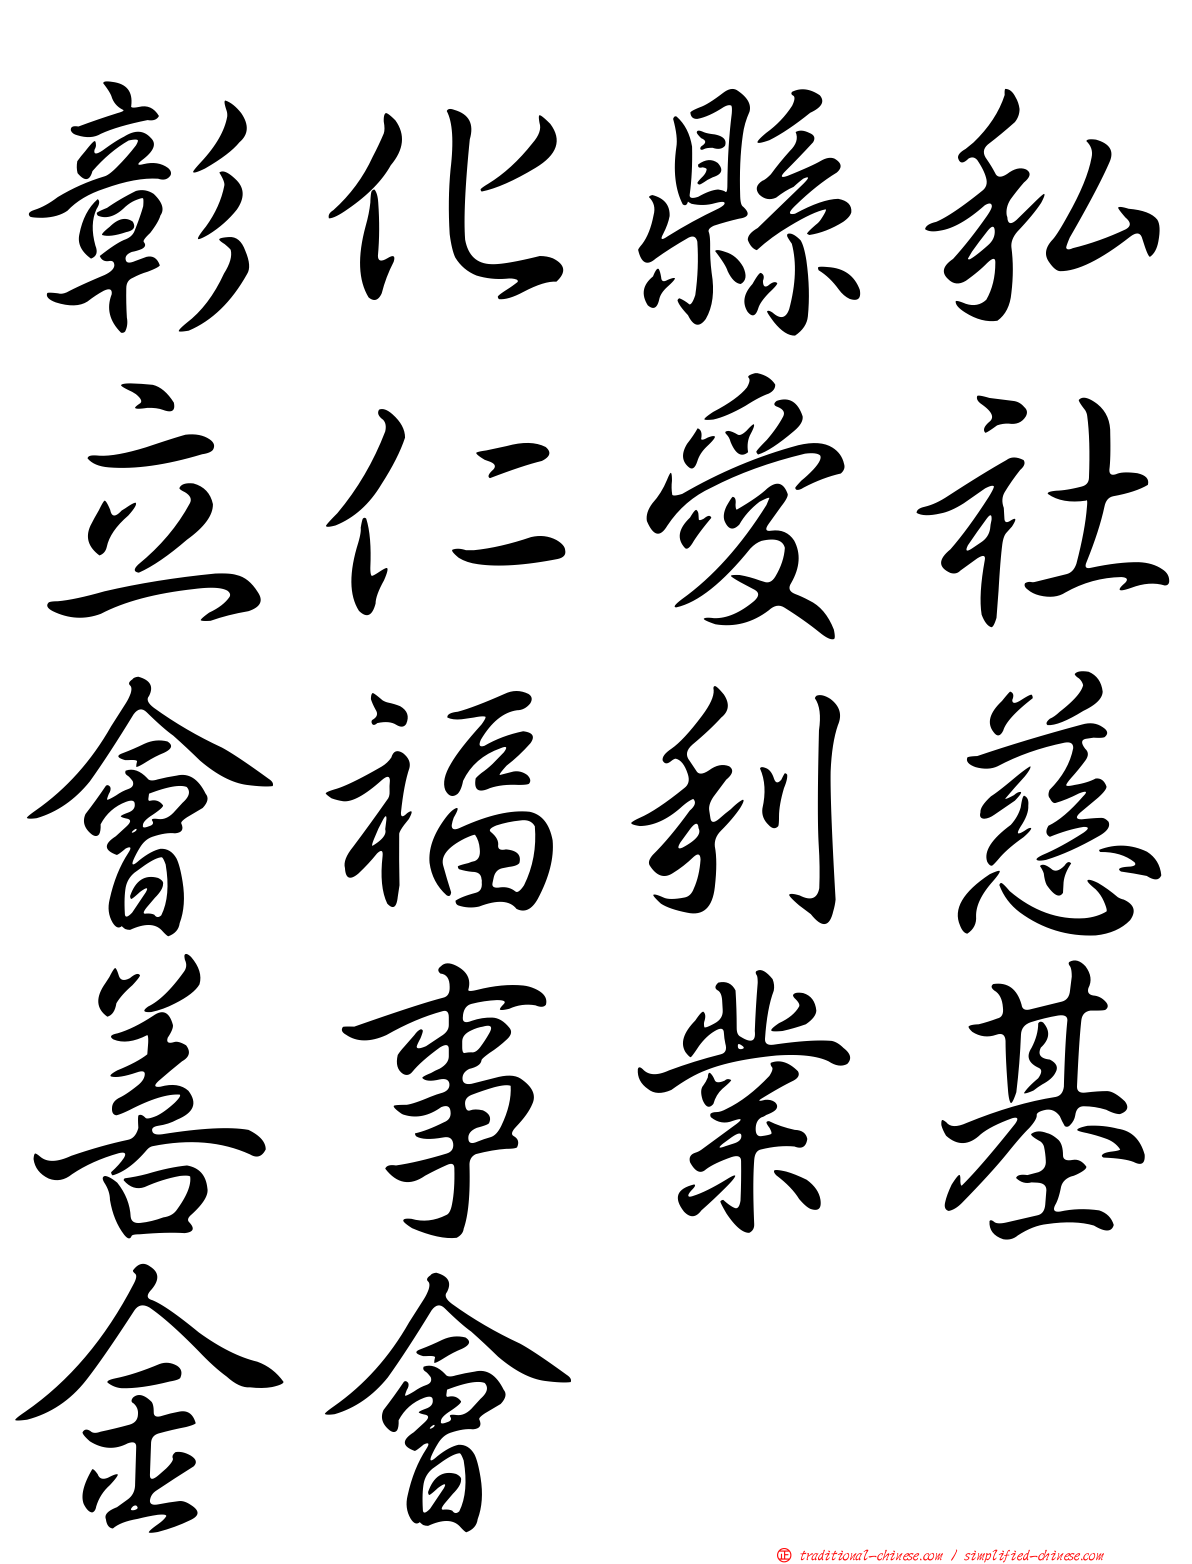 彰化縣私
立仁愛社
會福利慈
善事業基
金會
正 traditional-chinese.com / simplified-chinese.com